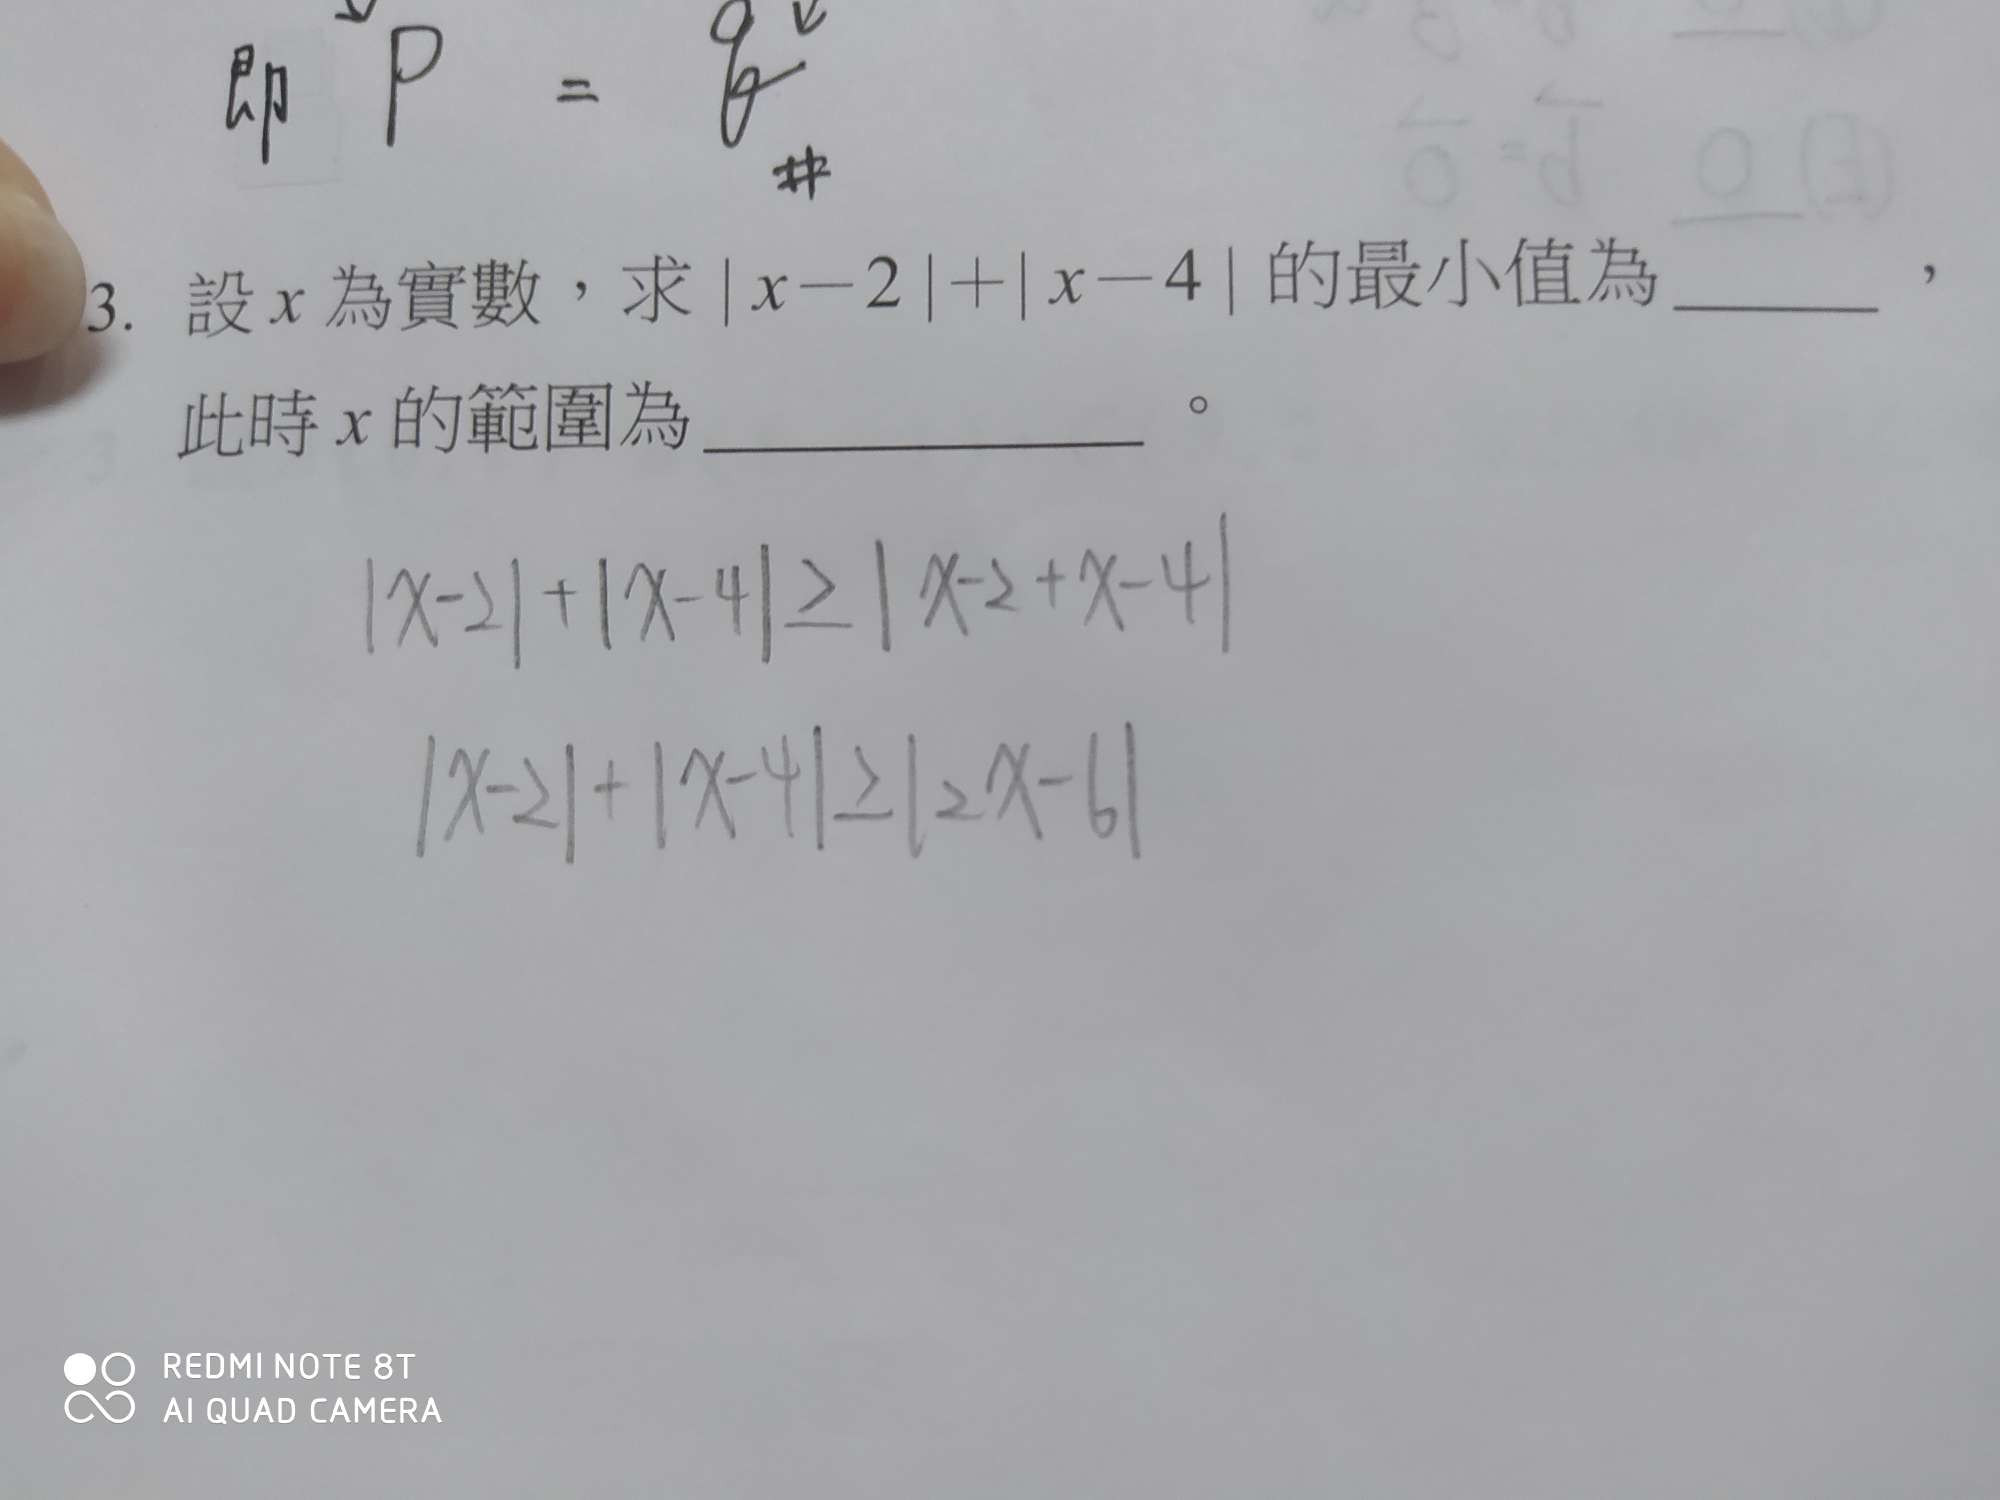 即 P = q
#
3. 設 x 為實數，求 | x－2 |＋| x－4 | 的最小值為＿＿＿，
此時 x 的範圍為＿＿＿＿＿＿。
|x-2|+|x-4|≥|x-2+x-4|
|x-2|+|x-4|≥|2x-6|
REDMI NOTE 8T
AI QUAD CAMERA